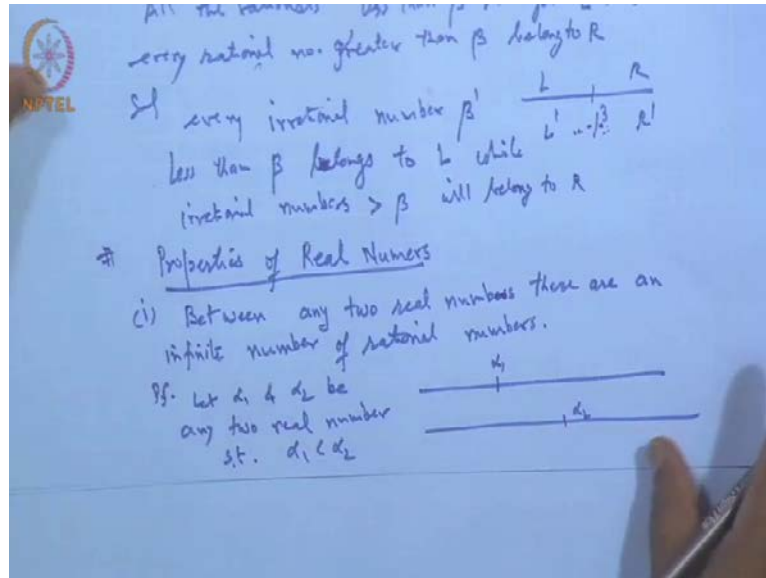 All the rationals less than β
every rational no. greater than β belong to R
NPTEL
every irrational number β'
L R
less than β belongs to L while
L' β R'
irrational numbers > β will belong to R
# Properties of Real Numers
(i) Between any two real numbers there are an
infinite number of rational numbers.
Pf. Let α₁ & α₂ be
α₁
any two real number
α₂
s.t. α₁ < α₂